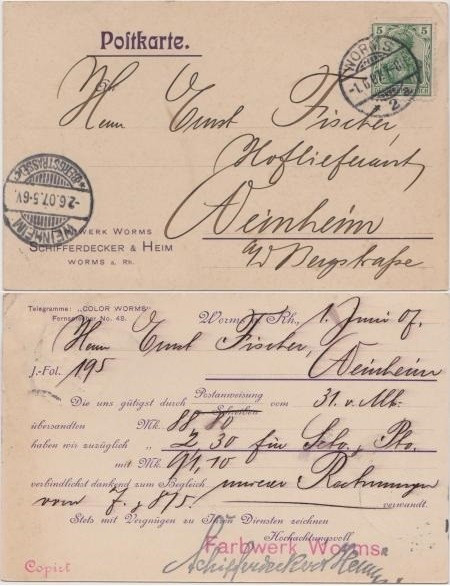 Postkarte.
5 5
WORMS
-1.6.07.
2
Herrn Ernst Fischer,
Hoflieferant,
Weinheim
a/d Bergstraße
WEINHEIM
-2.6.07.5-6V.
BERGSTRASSE
Farbwerk Worms
Schifferdecker & Heim
Worms a. Rh.
Telegramme: „COLOR WORMS"
Fernsprecher No. 48.
Worms a. Rh., 1. Juni 07.
Herrn Ernst Fischer, Weinheim
J.-Fol. 195
Die uns gütigst durch Postanweisung vom 31. v. Mts.
Schreiben
übersandten Mk. 88,80
haben wir zuzüglich „ 2,30 für Sto,
mit Mk. 91,10
verbindlichst dankend zum Begleich unserer Rechnungen
vom verwandt.
Stets mit Vergnügen zu Ihren Diensten zeichnen
Hochachtungsvoll
Farbwerk Worms
Schifferdecker & Heim
Copirt